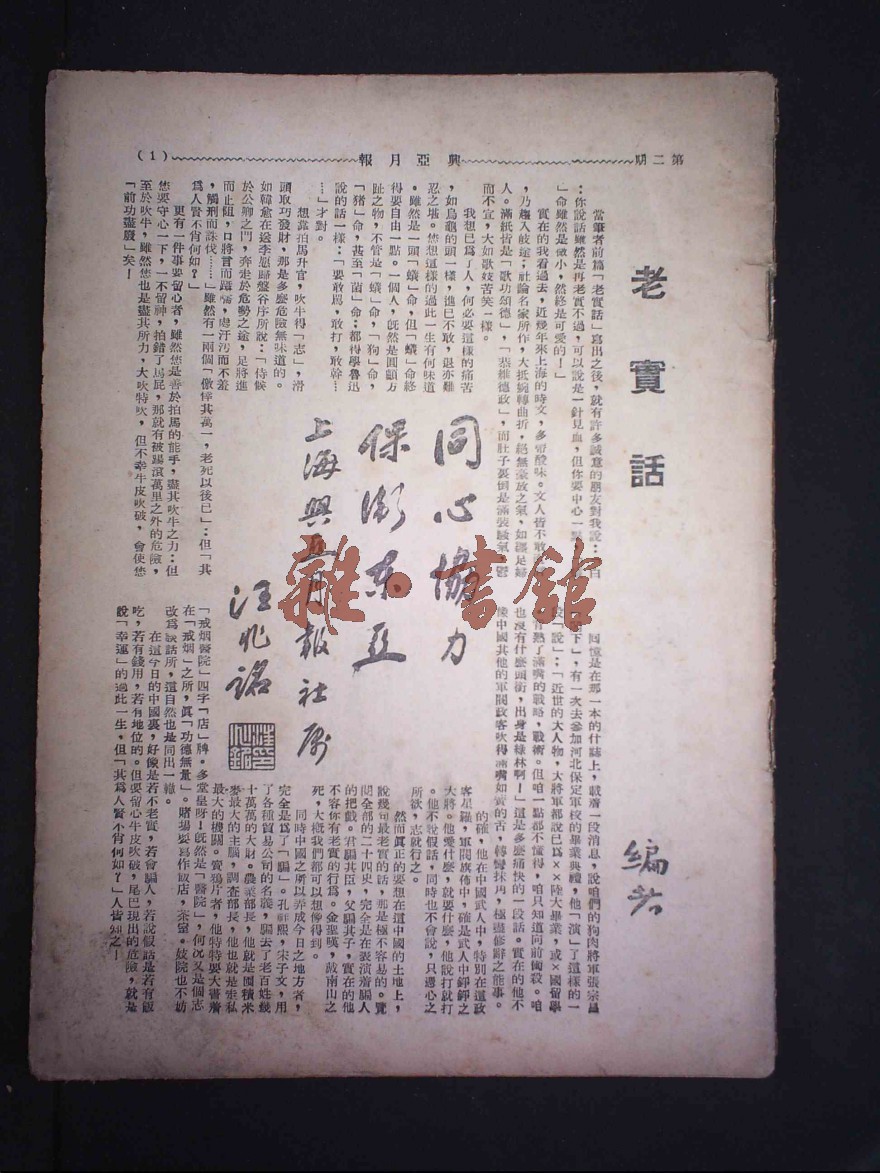 第二期
興亞月報
(1)
老實話
編者
當筆者前篇「老實話」寫出之後，就有許多誠意的朋友對我說：「白
：你說話雖然是再老實不過，可以說是一針見血，但你要中心一點
」命雖然是微小，然終是可愛的！」
實在的我看過去，近幾年來上海的時文，多帶酸味。文人皆不敢
，乃趨入歧途；社論名家所作，大抵婉轉曲折，絕無豪放之氣，如纏足婦
人。滿紙皆是「歌功頌德」，「恭維德政」，而肚子裏倒是滿裝騷氣，鬱
而不宣，大如歌妓苦笑一樣。
我想已爲了人，何必要這樣的痛苦
，如烏龜的頭一樣，進已不敢，退亦難
忍之堪。您想這樣的過此一生有何味道
。雖然是一頭「蟻」命，但「蟻」命終
得要自由一點。一個人，旣然是圓顱方
趾之物，不管是「蟻」命，「狗」命，
「猪」命，甚至「菌」命：都得學魯迅
說的話一樣：「要敢罵，敢打，敢幹…
…」才對。
想靠拍馬升官，吹牛得「志」，滑
頭取巧發財，那是多麼危險無味道的。
如韓愈在送李愿歸盤谷序所說：「侍候
於公卿之門，奔走於危勢之途，足將進
而止阻，口將言而躡嚅，處汙污而不羞
，觸刑而誅伐……」雖然有一兩個「儌倖其萬一，老死以後已」：但「其
爲人賢不肖何如？」
更有一件事要留心者，雖然您是善於拍馬的能手，盡其吹牛之力：但
您要守心一下，一不留神，拍錯了馬屁，那就有被踢滾萬里之外的危險，
至於吹牛，雖然您也是盡其所力，大吹特吹，但不幸牛皮吹破，會使您
「前功盡廢」矣！
同心協力
保衛東亞
上海興亞月報社屬
汪兆銘
雜·書館
回憶是在那一本的什誌上，載着一段消息，說咱們的狗肉將軍張宗昌
下」，有一次去參加河北保定軍校的畢業典禮，他「演」了這樣的一
段「說」：「近世的大人物，大將軍都說已爲××陸大畢業，或×國留學
背熟了滿嘴的戰略，戰術。但咱一點都不懂得，咱只知道向前衝殺。咱
也沒有什麼頭銜，出身是綠林啊！」這是多麼痛快的一段話。實在的他不
像中國其他的軍閥政客吹得滿嘴如簧的舌，轉彎抹角，極盡修辭之能事。
的確，他在中國武人中，特別在這政
客星羅，軍閥旗佈中，確是武人中錚錚之
大將。他愛什麼，就要什麼，他說打就打
。他不說假話，同時也不會說，只邊心之
所欲，志就行之。
然而眞正的要想在這中國的土地上，
說幾句最老實的話，那是極不容易的。覽
閱全部的二十四史，完全是在表演着騙人
的把戲。君騙其臣，父騙其子，實在的他
不容你有老實的行爲。金聖嘆，敲南山之
死，大槪我們都可以想像得到。
同時中國之所以弄成今日之地方者，
完全是爲了「騙」。孔祥熙，宋子文，用
了各種貿易公司的名義，騙去了老百姓幾
十萬萬的大財。農業部長，他就是囤積米
麥最大的主腦，調查部長，他也就是走私
最大的機關。賣鴉片者，他特特要大書着
「戒烟醫院」四字「店」牌。多堂皇呀！旣然是「醫院」，何况又是個志
在「戒烟」之所，眞「功德無量」。賭場要寫作飯店，茶室。妓院也不妨
改爲談話所，這自然也是同出一轍。
在這今日的中國裏，好像是若不老實，若會騙人，若說假話是若有飯
吃，若有錢用，若有地位的。但要留心牛皮吹破，尾巴現出的危險，就是
說「幸運」的過此一生，但「其爲人賢不肖何如？」人皆知之！